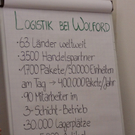 LOGISTIK BEI WOLFORD
-63 Länder weltweit
-3500 Handelspartner
-1700 Pakete/50000 Einheiten
am Tag → 400.000 Pakete/Jahr
-90 Mitarbeiter im
3-Schicht-Betrieb
-30.000 Lagerplätze